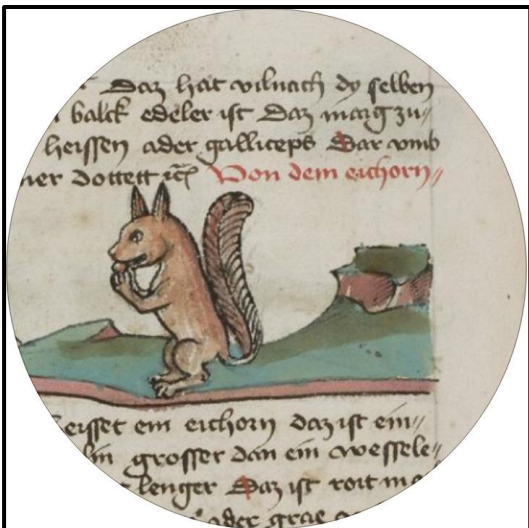 Daz hat vilnach dy selben
balck edeler ist Daz mag zu//
heissen ader galliceps Dar vmb
ner dottett ich Von dem eichorn//
eisset ein eichorn daz ist ein//
lin grosser dan ein wessele//
lenger Daz ist roit
ader grae